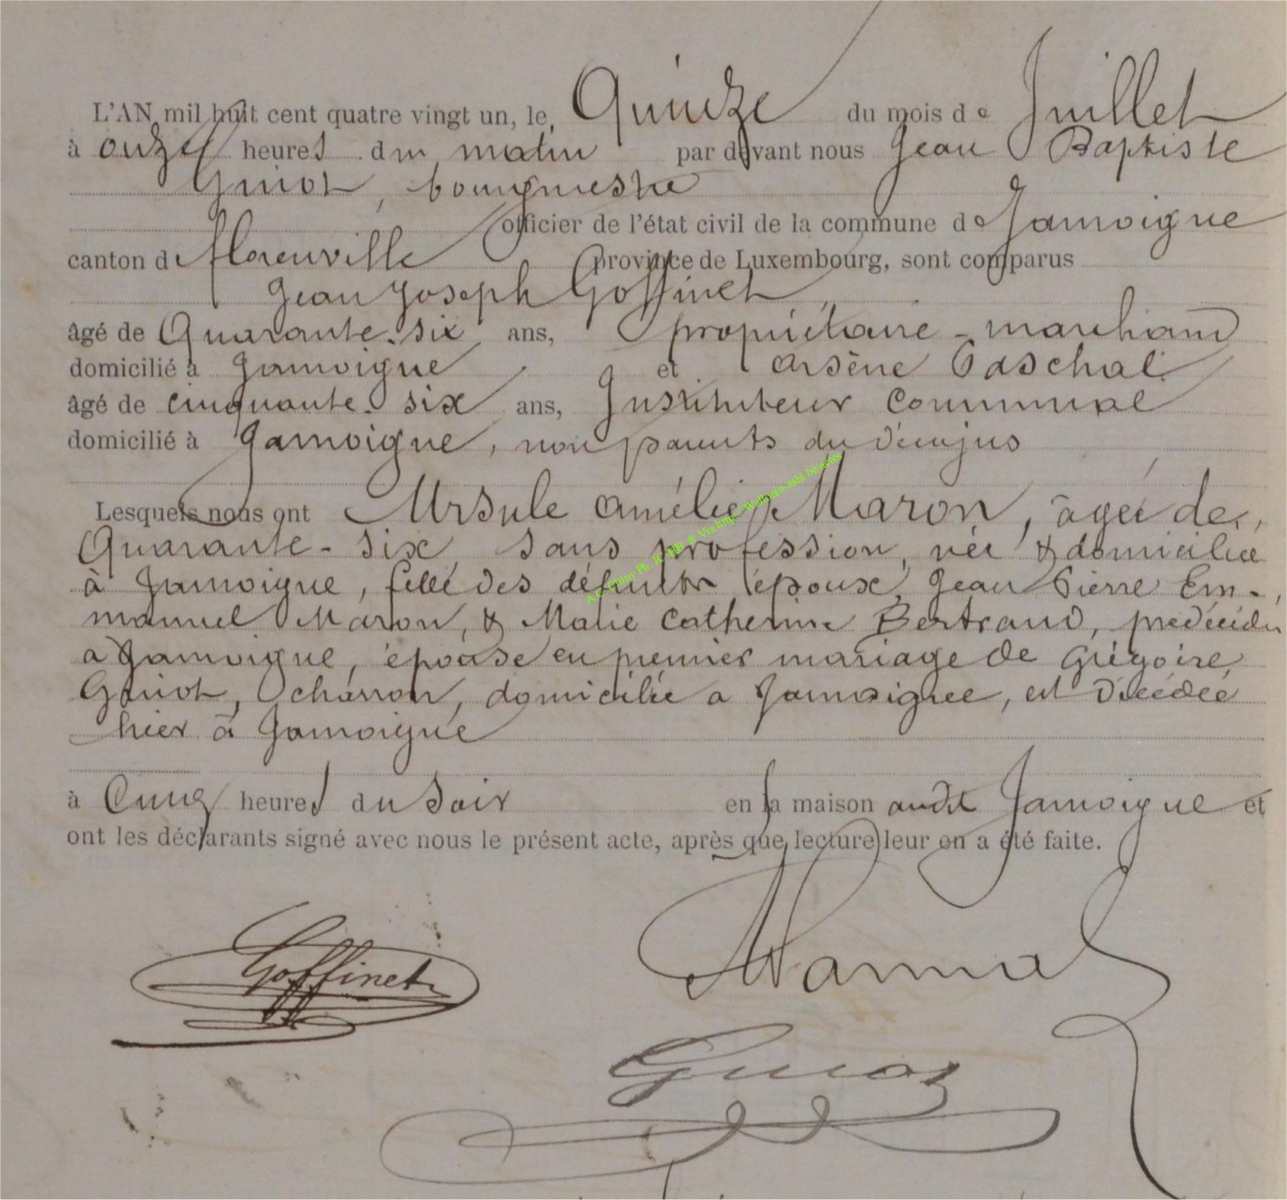 L'AN mil huit cent quatre vingt un, le Quinze du mois de Juillet
à onze heures du matin par devant nous Jean Baptiste
Guiot, bourgmestre
officier de l'état civil de la commune de Jamoigne
canton de florenville province de Luxembourg, sont comparus
Jean Joseph Goffinet,
âgé de Quarante-six ans, propriétaire-marchand
domicilié à Jamoigne, et Arsène Paschal
âgé de cinquante-six ans, Instituteur Communal
domicilié à Jamoigne, non parents du décujus
Lesquels nous ont Ursule Amélie Maron, âgée de
Quarante-six sans profession, née & domiciliée
à Jamoigne, fille des défunts époux, Jean Pierre Em-
manuel Maron, & Marie Catherine Bertrand, prédécédés
a Jamoigne, épouse en premier mariage de Grégoire
Guiot, charron, domiciliée a Jamoigne, est décédée
hier à Jamoigne
à Cinq heures du soir en sa maison audit Jamoigne et
ont les déclarants signé avec nous le présent acte, après que lecture leur en a été faite.
Goffinet
Guiot